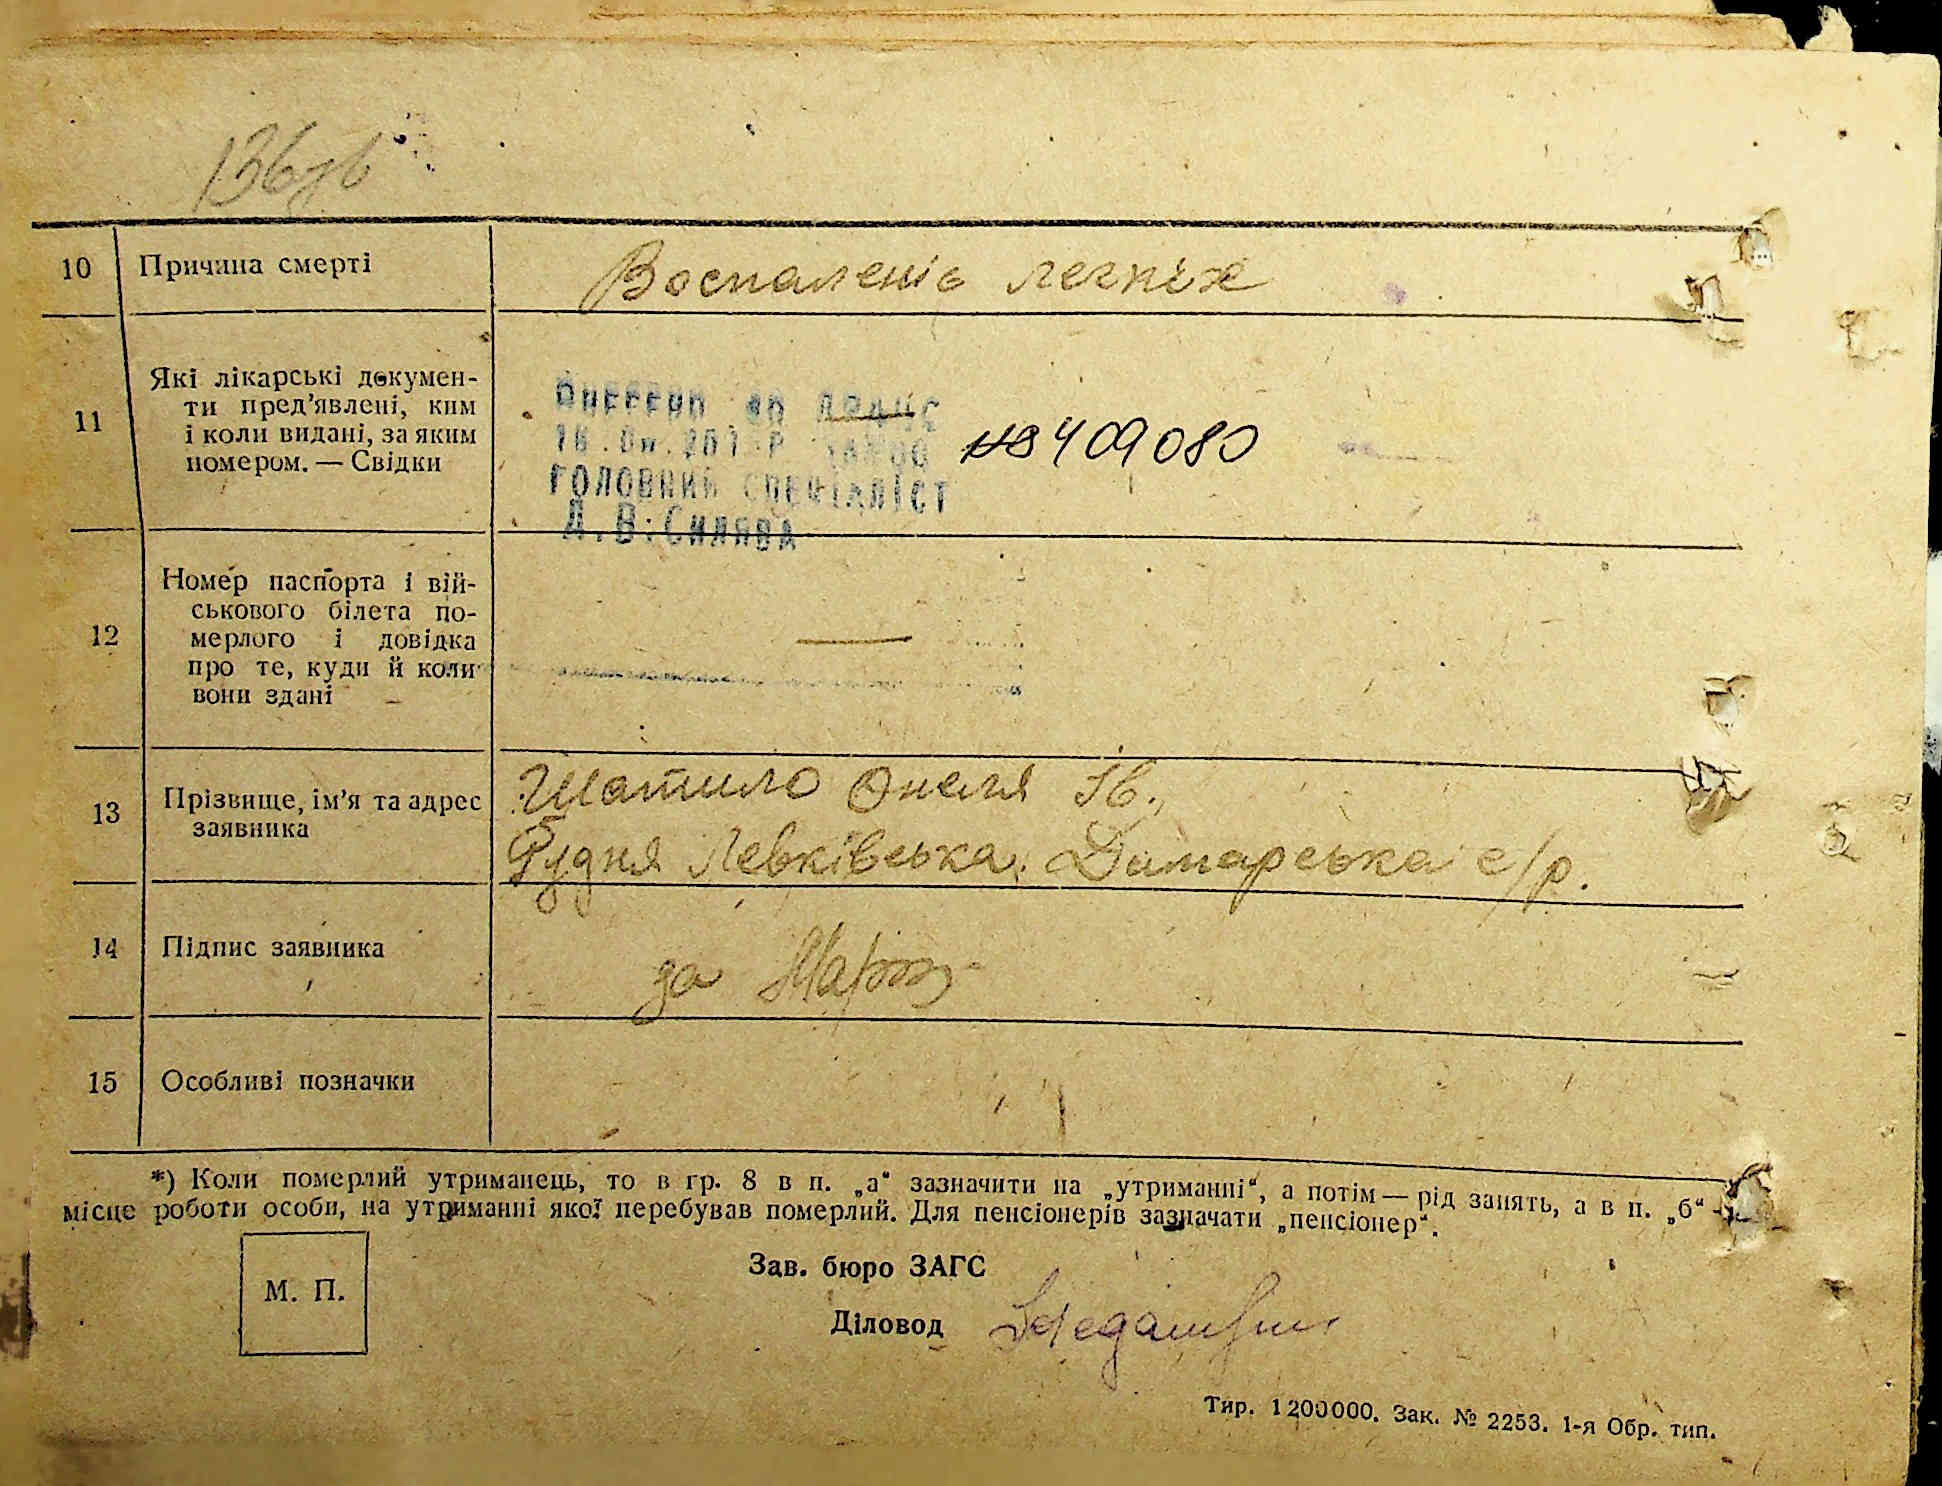 136
10 Причина смерті Воспаленіе легкіх
11 Які лікарські докумен-
ти пред'явлені, ким
і коли видані, за яким
номером. — Свідки
Внесено до ДРАЦС
409080
ГОЛОВНИЙ СПЕЦІАЛІСТ
Д.В.Силява
12 Номер паспорта і вій-
ськового білета по-
мерлого і довідка
про те, куди й коли
вони здані —
13 Прізвище, ім'я та адрес
заявника
Шатило Онеля Ів.
Рудня Левківська, Димарська с/р.
14 Підпис заявника за
15 Особливі позначки
*) Коли померлий утриманець, то в гр. 8 в п. „а“ зазначити на „утриманні“, а потім — рід занять, а в п. „б“ -
місце роботи особи, на утриманні якої перебував померлий. Для пенсіонерів зазначати „пенсіонер“.
Зав. бюро ЗАГС
М. П.
Діловод
Тир. 1200000. Зак. № 2253. 1-я Обр. тип.